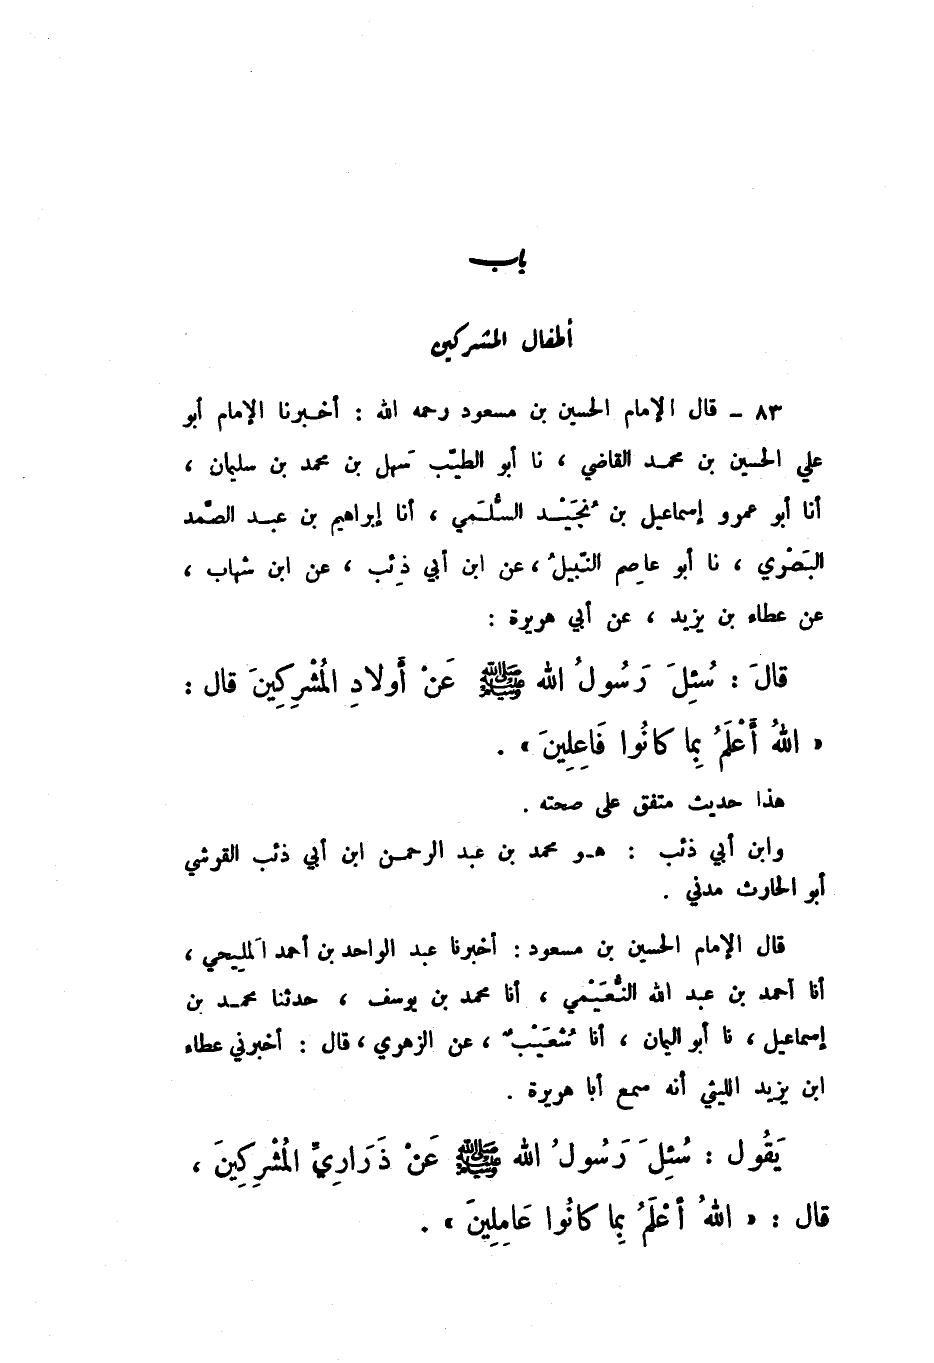 باب
أطفال المشركين
٨٣ - قال الإمام الحسين بن مسعود رحمه الله : أخبرنا الإمام أبو
علي الحسين بن محمد القاضي ، نا أبو الطيّب سَهل بن محمد بن سليمان ،
أنا أبو عمرو إسماعيل بن نُجَيْد السُّلَمي ، أنا إبراهيم بن عبد الصَّمد
البَصْري ، نا أبو عاصِم النّبيلُ ، عن ابن أبي ذِئب ، عن ابن شهاب ،
عن عطاء بن يزيد ، عن أبي هريرة :
قالَ : سُئِلَ رَسُولُ الله ﷺ عَنْ أَولادِ المُشْرِكِينَ قال :
« اللهُ أَعْلَمُ بِما كانُوا فَاعِلِينَ » .
هذا حديث متفق على صحته .
وابن أبي ذئب : هو محمد بن عبد الرحمن ابن أبي ذئب القرشي
أبو الحارث مدني .
قال الإمام الحسين بن مسعود : أخبرنا عبد الواحد بن أحمد المَلِيحي ،
أنا أحمد بن عبد الله النُّعَيْمي ، أنا محمد بن يوسف ، حدثنا محمد بن
إسماعيل ، نا أبو اليمان ، أنا شُعَيْبٌ ، عن الزهري ، قال : أخبرني عطاء
ابن يزيد الليثي أنه سمع أبا هريرة .
يَقُول : سُئِلَ رَسُولُ الله ﷺ عَنْ ذَرَارِيِّ المُشْرِكِينَ ،
قال : « اللهُ أعْلَمُ بِما كانُوا عَامِلِينَ » .